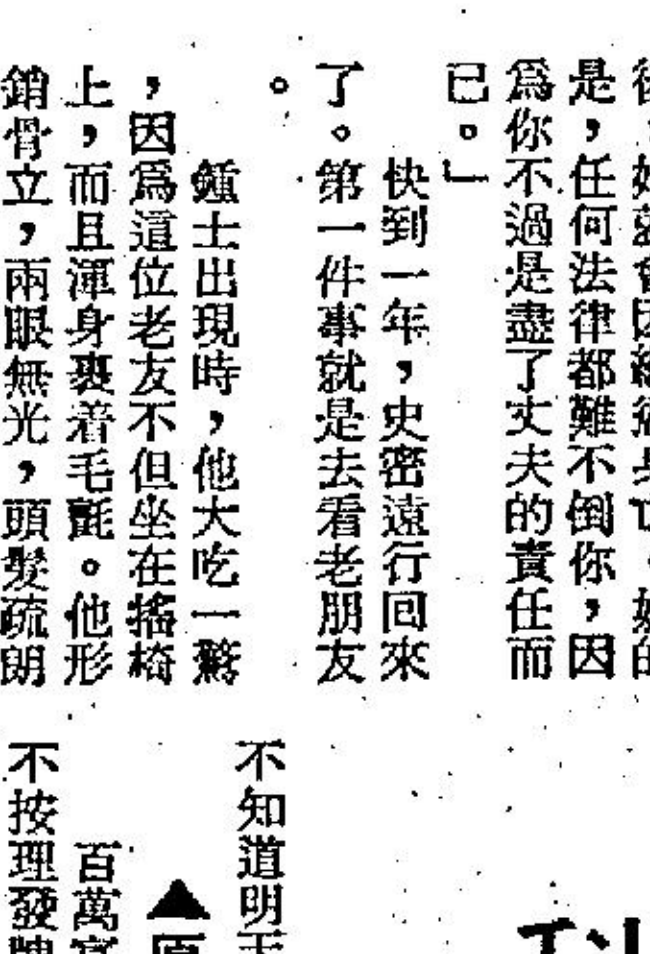 是，任何法律都難不倒你，因
爲你不過是盡了丈夫的責任而
已。」
快到一年，史密遠行回來
了。第一件事就是去看老朋友
。
鍾士出現時，他大吃一驚
，因爲這位老友不但坐在搖椅
上，而且渾身裹着毛氈。他形
銷骨立，兩眼無光，頭髮疏朗
不知道明天
▲原
百萬富
不按理發牌